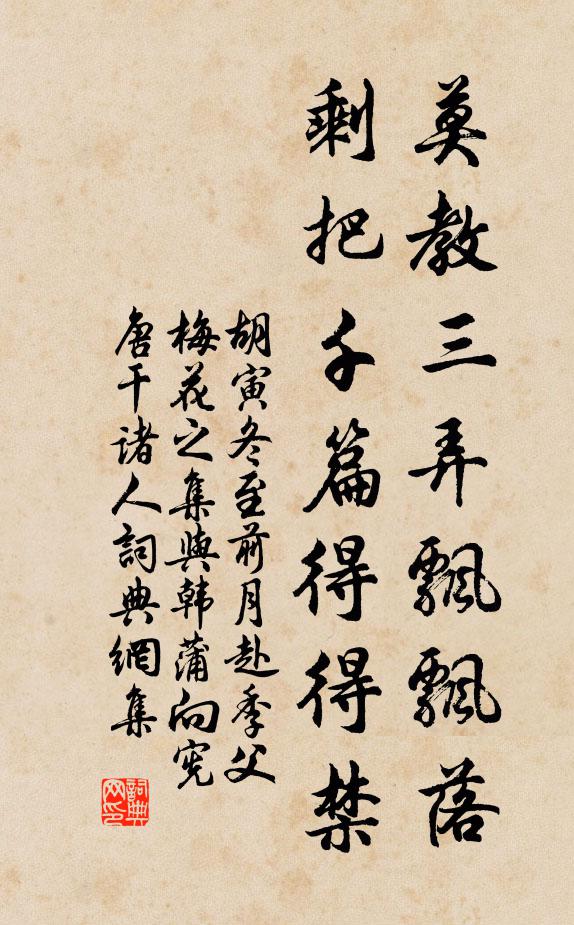 莫教三弄飘飘落
剩把千篇得得禁
胡寅冬至前月赴季父
梅花之集與韩蒲向宪
唐干诸人詞典網集
詞典网印